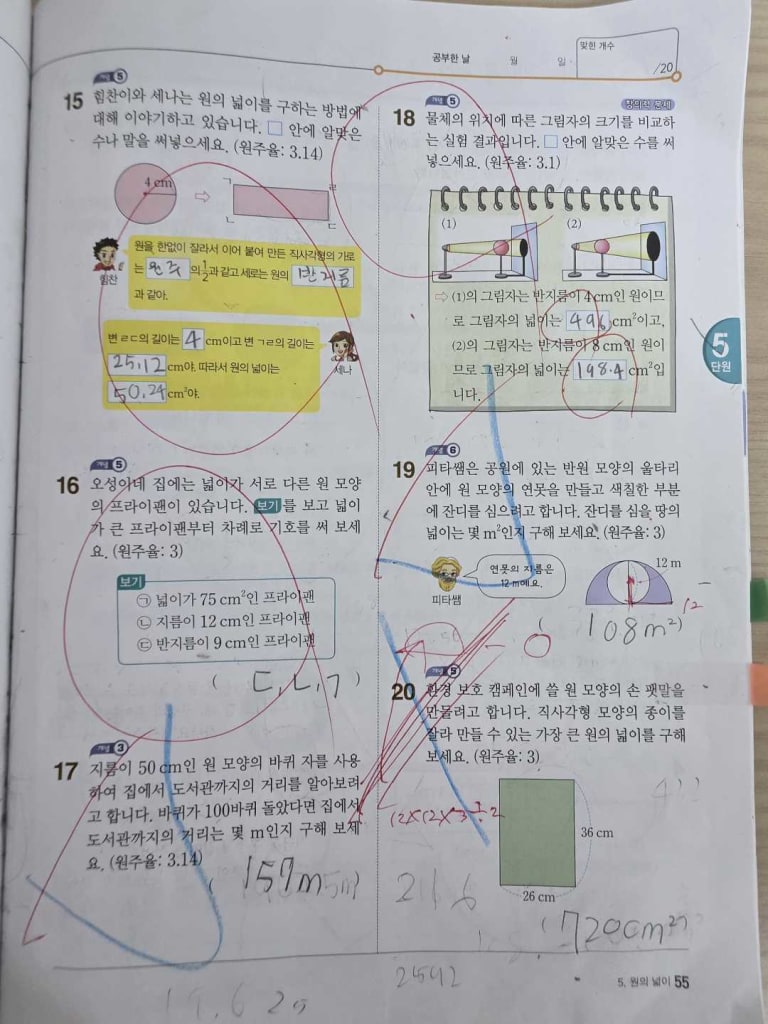 공부한 날 월 일
맞힌 개수
/20
개념 5
15 힘찬이와 세나는 원의 넓이를 구하는 방법에
대해 이야기하고 있습니다. □ 안에 알맞은
수나 말을 써넣으세요. (원주율: 3.14)
4 cm
ㄱ ㄹ
ㄴ ㄷ
원을 한없이 잘라서 이어 붙여 만든 직사각형의 가로
는 원주 의 1/2과 같고 세로는 원의 반지름
과 같아.
힘찬
변 ㄹㄷ의 길이는 4 cm이고 변 ㄱㄹ의 길이는
25.12 cm야. 따라서 원의 넓이는
50.24 cm²야.
세나
개념 5
16 오성이네 집에는 넓이가 서로 다른 원 모양
의 프라이팬이 있습니다. 보기 를 보고 넓이
가 큰 프라이팬부터 차례로 기호를 써 보세
요. (원주율: 3)
보기
㉠ 넓이가 75 cm²인 프라이팬
㉡ 지름이 12 cm인 프라이팬
㉢ 반지름이 9 cm인 프라이팬
( ㄷ, ㄴ, ㄱ )
개념 3
17 지름이 50 cm인 원 모양의 바퀴 자를 사용
하여 집에서 도서관까지의 거리를 알아보려
고 합니다. 바퀴가 100바퀴 돌았다면 집에서
도서관까지의 거리는 몇 m인지 구해 보세
요. (원주율: 3.14)
( 157m )
개념 5
창의적 문제
18 물체의 위치에 따른 그림자의 크기를 비교하
는 실험 결과입니다. □ 안에 알맞은 수를 써
넣으세요. (원주율: 3.1)
(1) (2)
⇨ (1)의 그림자는 반지름이 4 cm인 원이므
로 그림자의 넓이는 49.6 cm²이고,
(2)의 그림자는 반지름이 8 cm인 원이
므로 그림자의 넓이는 198.4 cm²입
니다.
5
단원
개념 6
19 피타쌤은 공원에 있는 반원 모양의 울타리
안에 원 모양의 연못을 만들고 색칠한 부분
에 잔디를 심으려고 합니다. 잔디를 심을 땅의
넓이는 몇 m²인지 구해 보세요. (원주율: 3)
연못의 지름은
12 m예요.
피타쌤
12 m
12
( 108m² )
개념 5
20 환경 보호 캠페인에 쓸 원 모양의 손 팻말을
만들려고 합니다. 직사각형 모양의 종이를
잘라 만들 수 있는 가장 큰 원의 넓이를 구해
보세요. (원주율: 3)
12×12×3÷2
36 cm
26 cm
216
( 720cm² )
2592
5. 원의 넓이 55